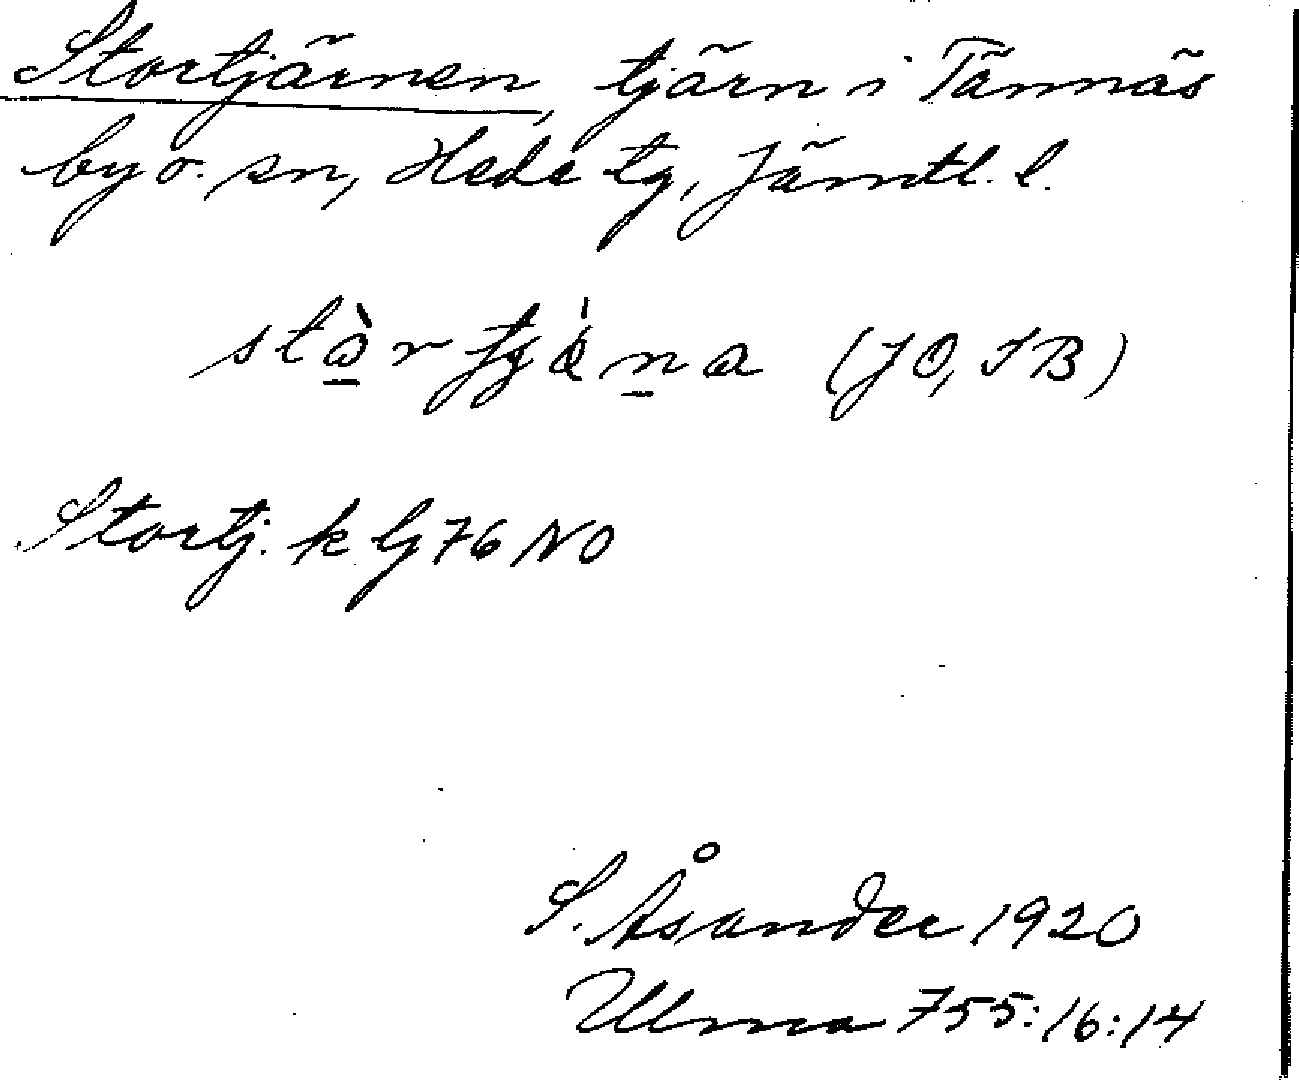 Stortjärnen, tjärn i Tännäs
by o. sn, Hede tg, Jämtl. l.
(JO, JB)
Stortj. k Lj 76 NO
S. Åsander 1920
Ulma 755:16:14